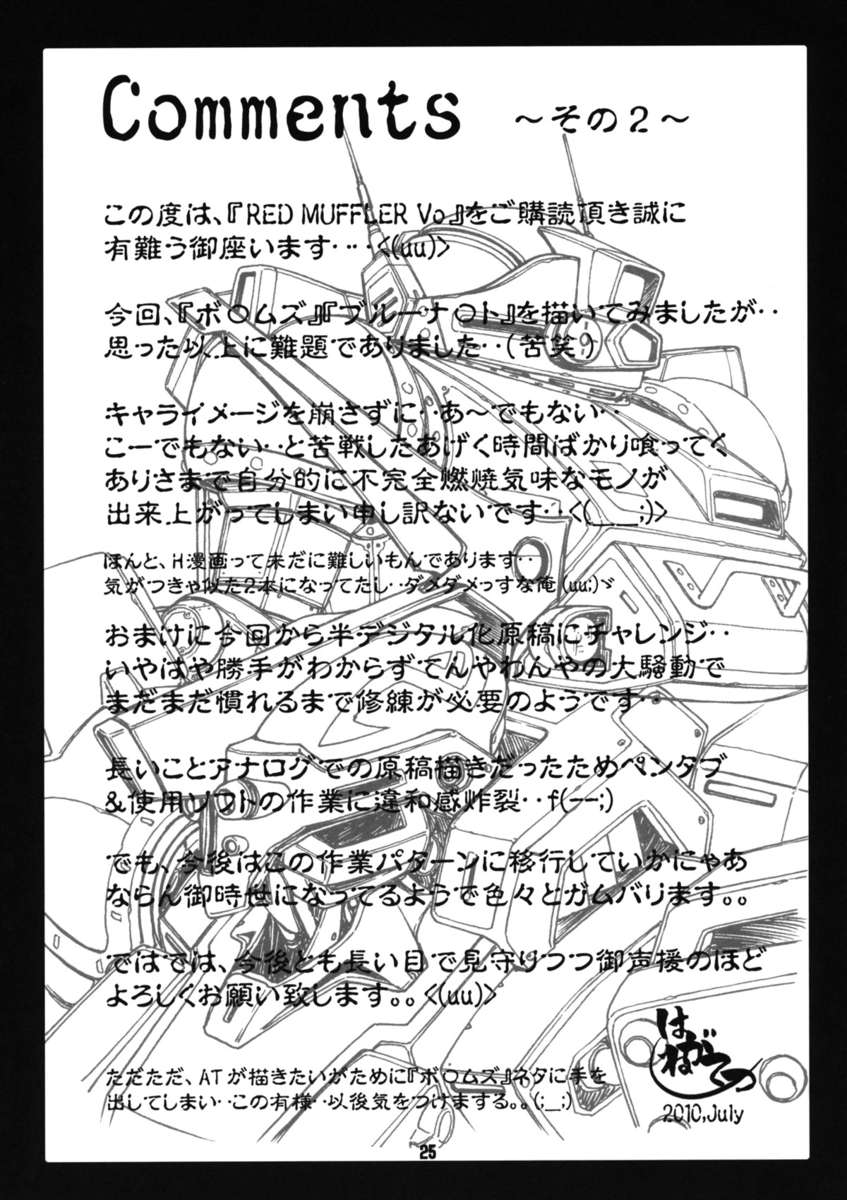 Comments ～その2～
この度は、『RED MUFFLER Vo』をご購読頂き誠に
有難う御座います‥‥<(uu)>
今回、『ボ○ムズ』『ブルーナ○ト』を描いてみましたが‥
思った以上に難題でありました‥(苦笑)
キャライメージを崩さずに‥あ～でもない‥
こーでもない‥と苦戦したあげく時間ばかり喰ってく
ありさまで自分的に不完全燃焼気味なモノが
出来上がってしまい申し訳ないです‥<(___;)>
ほんと、H漫画って未だに難しいもんであります‥
気がつきゃ似た2本になってたし‥ダメダメっすな俺(uu;)ゞ
おまけに今回から半デジタル化原稿にチャレンジ‥
いやはや勝手がわからずてんやわんやの大騒動で
まだまだ慣れるまで修練が必要のようです‥‥
長いことアナログでの原稿描きだったためペンタブ
&使用ソフトの作業に違和感炸裂‥f(ーー;)
でも、今後はこの作業パターンに移行していかにゃあ
ならん御時世になってるようで色々とガムバります。。
ではでは、今後とも長い目で見守りつつ御声援のほど
よろしくお願い致します。。<(uu)>
ただただ、ATが描きたいがために『ボ○ムズ』ネタに手を
出してしまい‥この有様‥以後気をつけまする。。(;__;)
2010,July
25